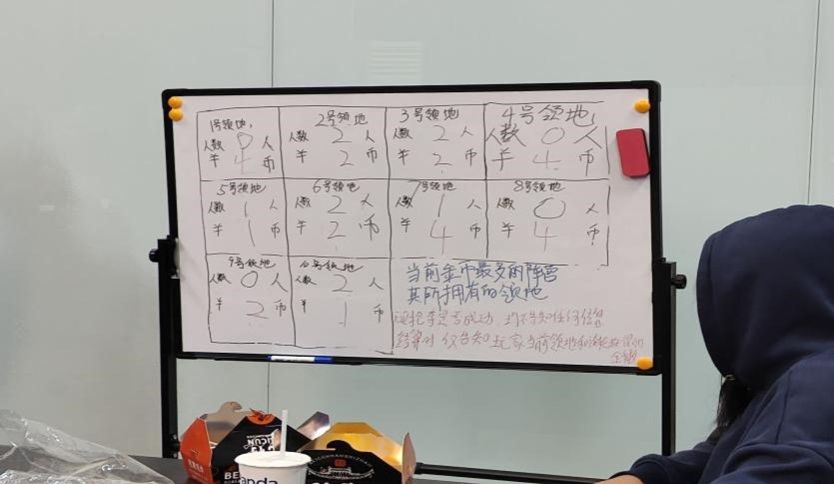 1号领地
2号领地
3号领地
4号领地
人数 0 人
人数 2 人
人数 2 人
人数 0 人
羊 4 币
羊 2 币
羊 2 币
羊 4 币
5号领地
6号领地
7号领地
8号领地
人数 1 人
人数 2 人
人数 1 人
人数 0 人
羊 1 币
羊 2 币
羊 4 币
羊 4 币
9号领地
10号领地
人数 0 人
人数 2 人
羊 2 币
羊 1 币
当前金币最多的阵营
其所拥有的领地
成功
结算时 仅告知玩家当前领地